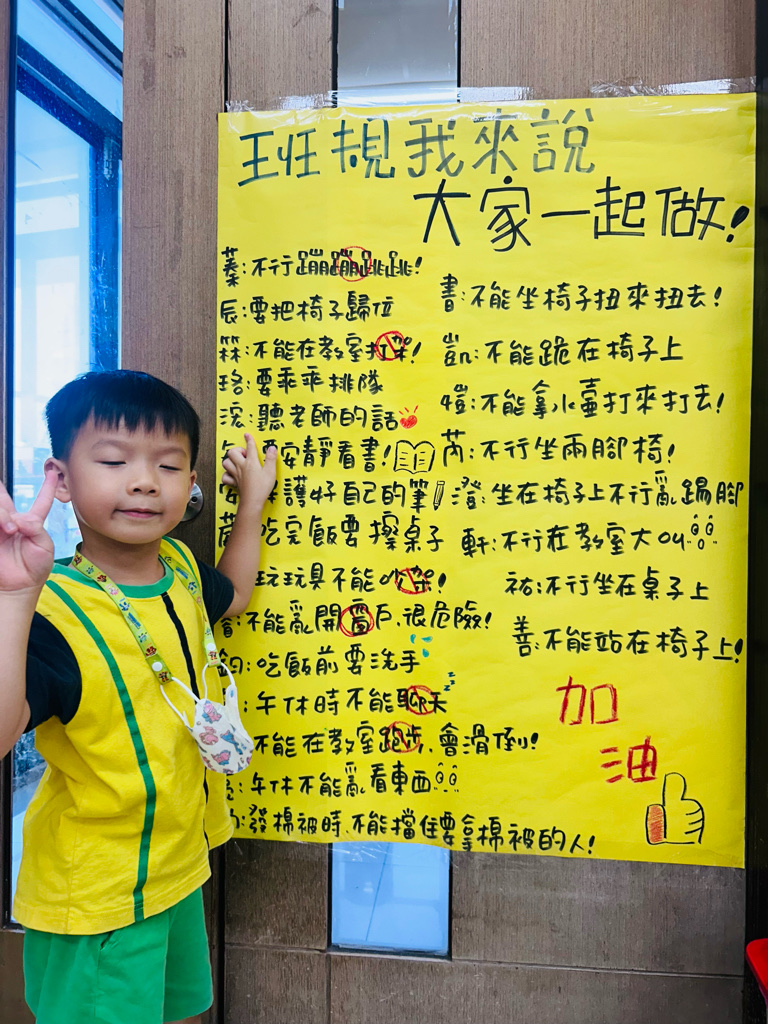 班規我來說
大家一起做!
蓁:不行蹦蹦跳跳!
辰:要把椅子歸位
霖:不能在教室打架!
珞:要乖乖排隊
:聽老師的話
要安靜看書!
護好自己的筆
吃完飯要擦桌子
玩玩具不能吵架!
:不能亂開窗戶、很危險!
:吃飯前要洗手
:午休時不能聊天
不能在教室跑步、會滑倒!
:午休不能亂看東西
:發棉被時、不能擋住要拿棉被的人!
書:不能坐椅子扭來扭去!
凱:不能跪在椅子上
:不能拿水壺打來打去!
芮:不行坐兩腳椅!
澄:坐在椅子上不行亂踢腳
軒:不行在教室大叫
祐:不行坐在桌子上
善:不能站在椅子上!
加
油